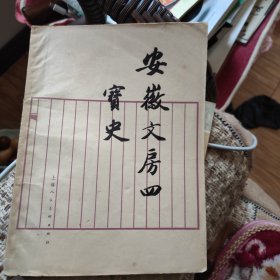 安徽文房四
寳史
上海人民美術出版社